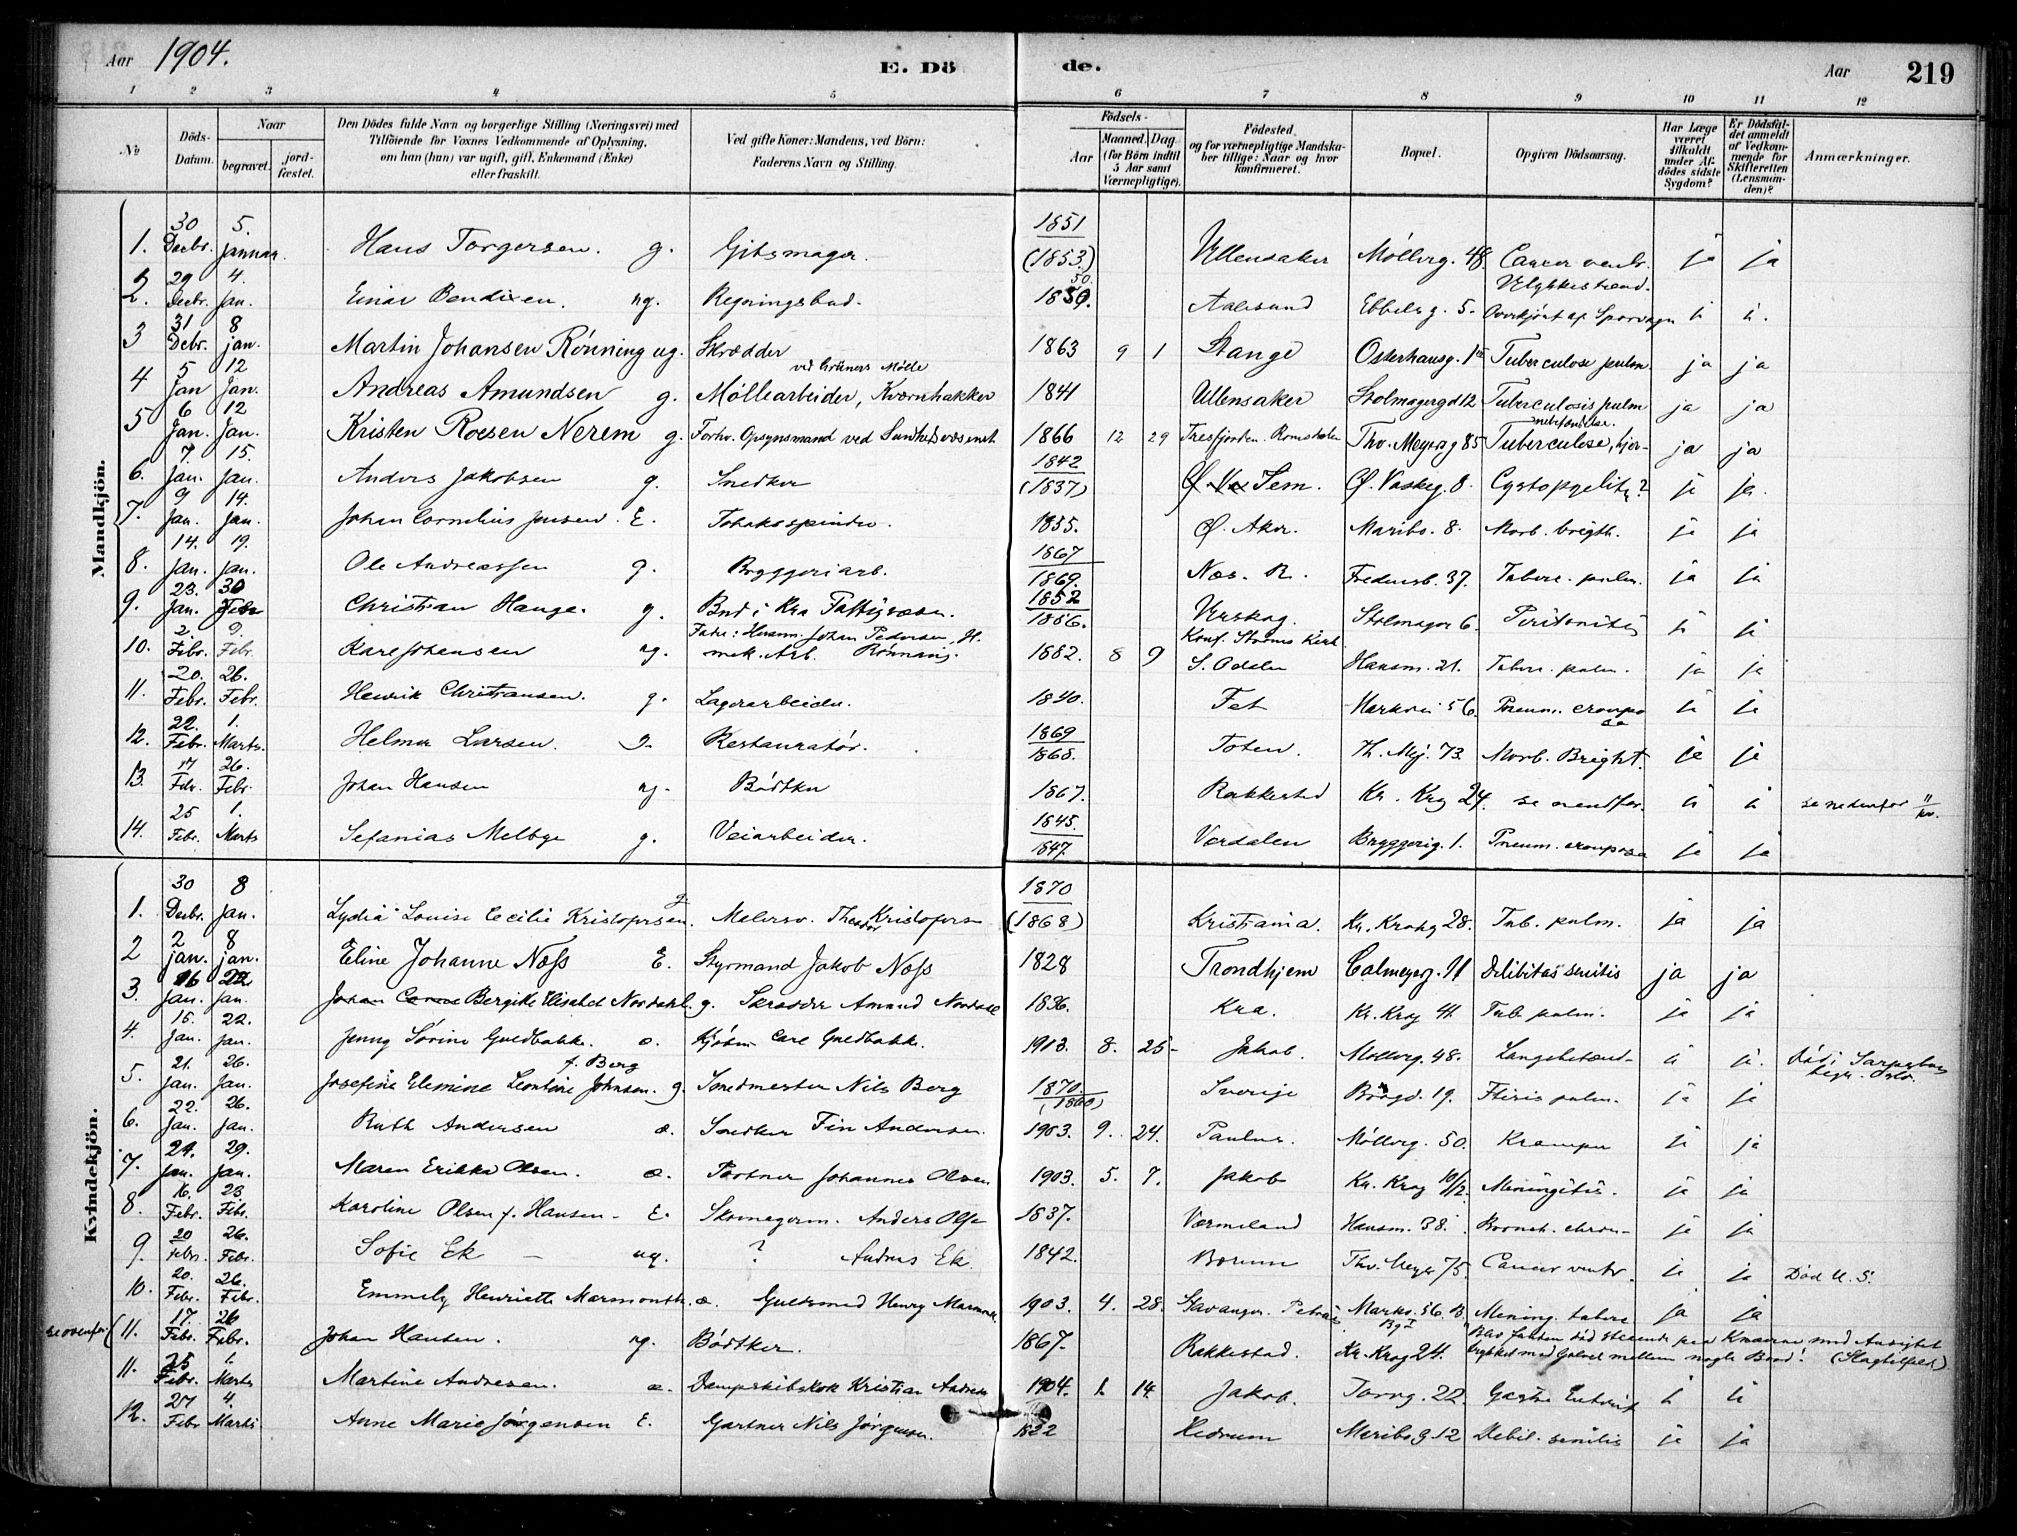 Aar 1904.
E. Dö
de.
Aar
219
1 2 3 4 5 6 7 8 9 10 11 12
№
Döds-Datum.
Naar
begravet.
jord-fæstet.
Den Dödes fulde Navn og borgerlige Stilling (Næringsvei) med
Tilföiende for Voxnes Vedkommende af Oplysning,
om han (hun) var ugift, gift, Enkemand (Enke)
eller fraskilt.
Ved gifte Koner: Mandens, ved Börn:
Faderens Navn og Stilling.
Födsels-
Aar
Maaned. Dag.
(for Börn indtil
5 Aar samt
Værnepligtige).
Födested,
og for værnepligtige Mandska-
ber tillige: Naar og hvor
konfirmeret.
Bopæl.
Opgiven Dödsaarsag.
Har Læge
været
tilkaldt
under Af-
dödes sidste
Sygdom?
Er Dödsfal-
det anmeldt
af Vedkom-
mende for
Skifteretten
(Lensman-
den)?
Anmærkninger.
Mandkjön.
1. 30 Decbr. 5. Januar. Hans Torgersen. g. Gibsmager. 1851 (1853.) Ullensaker Møllerg. 48. Cancer ventr. ja ja
2. 29 Decbr. 4. Jan. Einar Bendixen. ug. Regjeringsbud. 1850. 50. Aalesund Ebbelsg. 5. Ulykkestilfælde. Overkjørt af Sporvogn
3 31 Debr. 8 jan. Martin Johansen Rønning ug. Skrædder 1863 9 1 Stange Osterhausg. Tuberculose pulm. ja ja
4 5 Jan 12 Jan. Andreas Amundsen g. Møllearbeider, Kværnhakker ved Grüners Mølle 1841 Ullensaker Stolmagergd 12 Tuberculosis pulm ja ja
5 6 Jan. 12 Jan. Kristen Roesen Nerem g. Forhv. Opsynsmand ved Sundhedsvæsenet 1866 12 29 Tresfjorden. Romsdalen Thv. Meyersg 85 Tuberculose, hjer- ja ja
6. 7. Jan. 15. Jan. Anders Jakobsen g. Snedker 1842 (1837) Sem. Ø. Vaskeg. 8. ja ja.
7. 9 Jan. 14. Jan. Johan Cornelius Jensen. E. Tobakspinder. 1855. Ø. Aker. Maribo. 8. Morb. brigth. ja ja
8. 14. Jan. 19. Jan. Ole Andreassen g. Bryggeriarb. 1867 1869. Næs. R. Fredensb. 37. Tuberc. pulm. ja ja
9. 23. Jan. 30 Christian Hauge. g. Bud i Kra Fattigvæsen. 1852 1856. Urskog. Stolmager 6. Peritonitis ja ja
10. 2. Febr. 9. Febr. Karl Johansen ug. Fader: Husm. Johan Pedersen, mek. Arb. Rønning. 1882. 8 9 Konf. Storms Kirk S. Odalen Hausm. 21. Tuberc. pulm. ja ja
11. 20. Febr. 26. Febr. Henrik Christiansen. g. Lagerarbeider. 1840. Fet Markvei 56. Pneum. crouposa ja ja
12. 22. Febr. 1. Marts. Helmer Larsen. g. Restauratør. 1869 1868. Toten. Th. Mey. 73. Morb. Bright. ja ja
13. 17 Febr. 26. Febr. Johan Hansen ug. Bødtker 1867. Rakkestad Kr. Krog 24. se nedenfor se nedenfor 11/kv.
14. 25 Febr. 1. Marts Sefanias Melbye g. Veiarbeider. 1845. 1847. Verdalen Bryggerig. 1. Pneum. crouposa ja ja
Kvindekjön.
1. 30 Decbr. 8 Jan. Lydia Louise Cecilie Kristofersen. g Malersv. Theodor Kristofersen 1870 (1868) Kristiania. Kr. Krohg 28. Tub. pulm. ja ja
2 2 jan. 8 jan. Eline Johanne Næss E. Styrmand Jakob Næss 1828 Trondhjem Calmeyerg. 11 Debilitas senilis ja ja
3. 16 Jan. 22 jan. Bergitte Elisabet Nordahl. g. Skrædder Amund Nordahl 1836. Kra. Kr. Krog 41 Tub. pulm. ja ja
4. 15. Jan. 22. Jan. Jenny Sørine Guldbakk. æ. Kjøbm. Carl Guldbakk. 1903. 8. 25- Jakob. Møllerg. 48. Død i Sarpsborg
5. 21. Jan. 26. Jan. Josefine Elemine Leontine Johnsen. f. Berg g. Smedmester Nils Berg 1870. (1860) Sverige 19. Ftisis pulm. ja ja
6. 22. Jan. 26. Jan. Ruth Andersen æ. Snedker Fin Andersen. 1903. 9. 24. Paulus. Møllerg. 50. Krampe ja
7. 24. Jan. 29. Jan. Maren Erikka Olsen. æ. Portner Johannes Olsen 1903. 5. 7. Jakob Kr. Krog 10/2. Meningitis. ja ja
8. 16. Febr. 23 Febr. Karoline Olsen f. Hansen- E. Skomagerm. Anders Olsen 1837. Værmeland Hausm. 38. Bronch. chron- ja ja
9. 20 Febr. 26. Febr. Sofie Ek ug. ? Anders Ek. 1842. Thv. Meyer 75. Cancer ventr. ja ja Død U. S.
10. 20. Febr. 26. Febr. Emmely Henriette Marmonth. æ. Guldsmed Henry 1903. 4. 28. Stavanger. Petri Markv. 56. B Bg I Mening. tuberc ja ja
se ovenfor (11. 17. Febr. 26 Febr. Johan Hansen. ug. Bødtker. 1867. Rakkestad. Kr. Krog 24. Blev funden død staaende paa Knæerne med Ansigtet trykket med Gulvet mellem nogle Bord! (Slagtilfæld)
11. 25 Febr. 1. Marts Martine Andresen. æ. Dampskibskok Kristian Andresen 1904. 1. 14 Jakob. Torvg. 22. Gastro Enterit
12. 27 Febr 4. Marts Anne Marie Jørgensen E. Gartner Nils Jørgensen. 1822 Hedrum Maribog 12 Debil. senilis ja ja